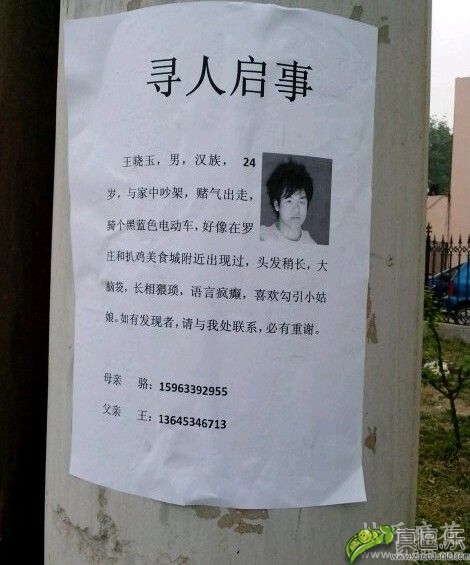 寻人启事
王晓玉，男，汉族， 24
岁，与家中吵架，赌气出走，
骑个黑蓝色电动车，好像在罗
庄和扒鸡美食城附近出现过，头发稍长，大
脑袋，长相猥琐，语言疯癫，喜欢勾引小姑
娘。如有发现者，请与我处联系，必有重谢。
母亲 骆：15963392955
父亲 王：13645346713